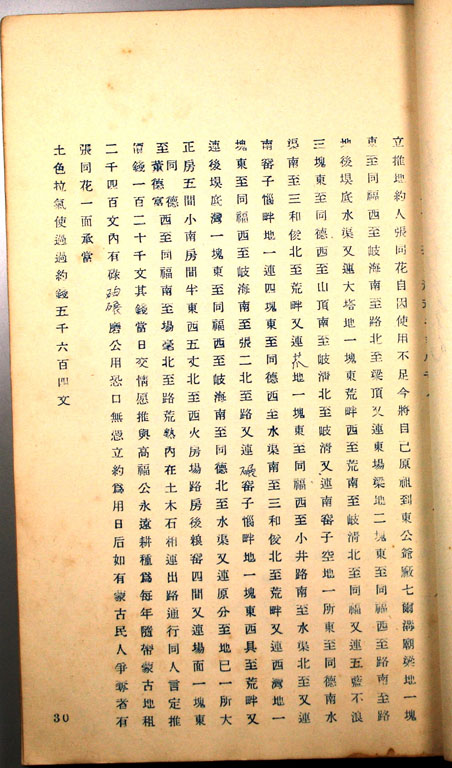 立推地約人張同花自因使用不足今將自己原祖到東公爺廠七爾溝廟梁地一塊
東至同福西至岐海南至路北至梁頂又連東場梁地二塊東至同福西至路南至路
地後垻底水渠又連大塔地一塊東荒畔西至荒南至岐清北至同福又連五藍不浪
三塊東至同德西至山頂南至岐清北至岐清又連南窑子空地一所東至同德南水
渠南至三和俊北至荒畔又連 地一塊東至同福西至小井路南至水渠北至又連
南窑子惱畔地一連四塊東至同德西至水渠南至三和俊北至荒畔又連西灣地一
塊東至同福西至岐海南至張二北至路又連碾窑子惱畔地一塊東西具至荒畔又
連後垻底灣一塊東至同福西至岐海南至同德北至水渠又連原分至地巳一所大
正房五間小南房間半東西五丈北至西火房場路房後糗窑四間又連場面一塊東
至同德董德富西至同福南至場毫北至路荒熟內在土木石相連出路通行同人言定推
清錢一百二十千文其錢當日交情愿推與高福公永遠耕種爲每年隨帶蒙古地租
二千四百文內有碌 碾磨公用恐口無憑立約爲用日后如有蒙古民人爭奪者有
張同花一面承當
土色拉氣使過過約錢五千六百四文
30